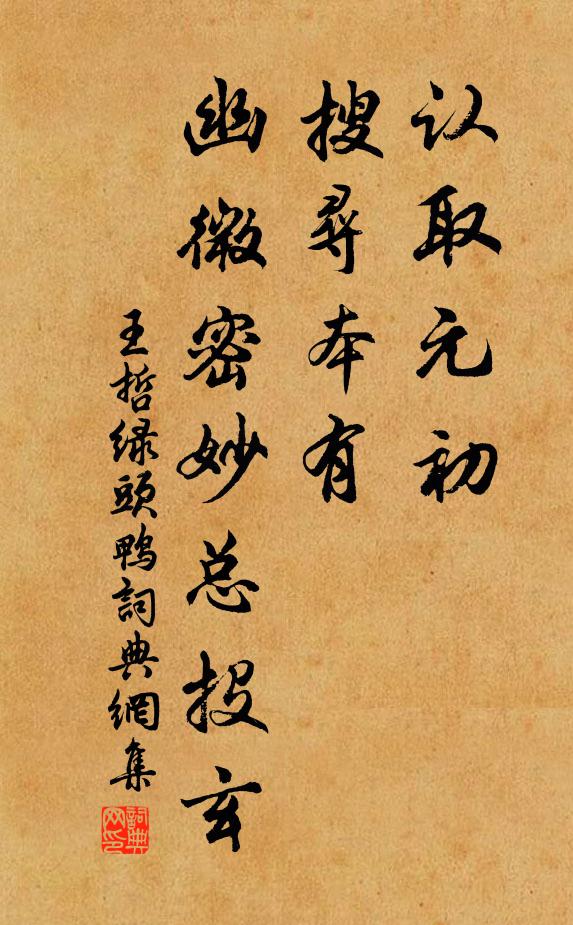 认取元初
搜寻本有
幽微密妙总投玄
王哲绿頭鴨詞典網集
詞典网印